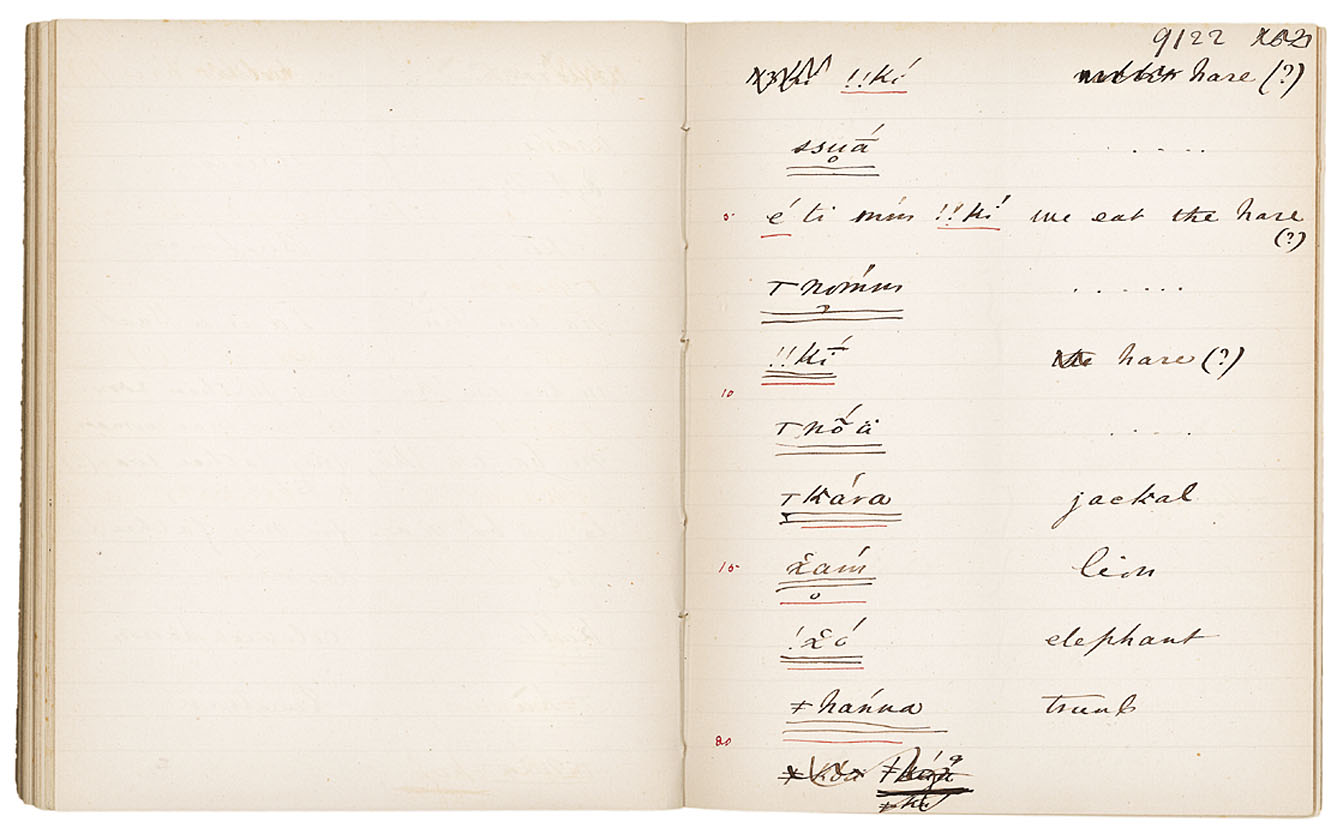 9122
!!kí hare (?)
ssuā́ .....
5 é ti mín !!kí we eat the hare
(?)
⊤nómm ......
!!kí̄ hare (?)
10
⊤nṍä ....
⊤kára jackal
15 x̌aḿ lion
!x̌ó elephant
ǂhánna trunk
20